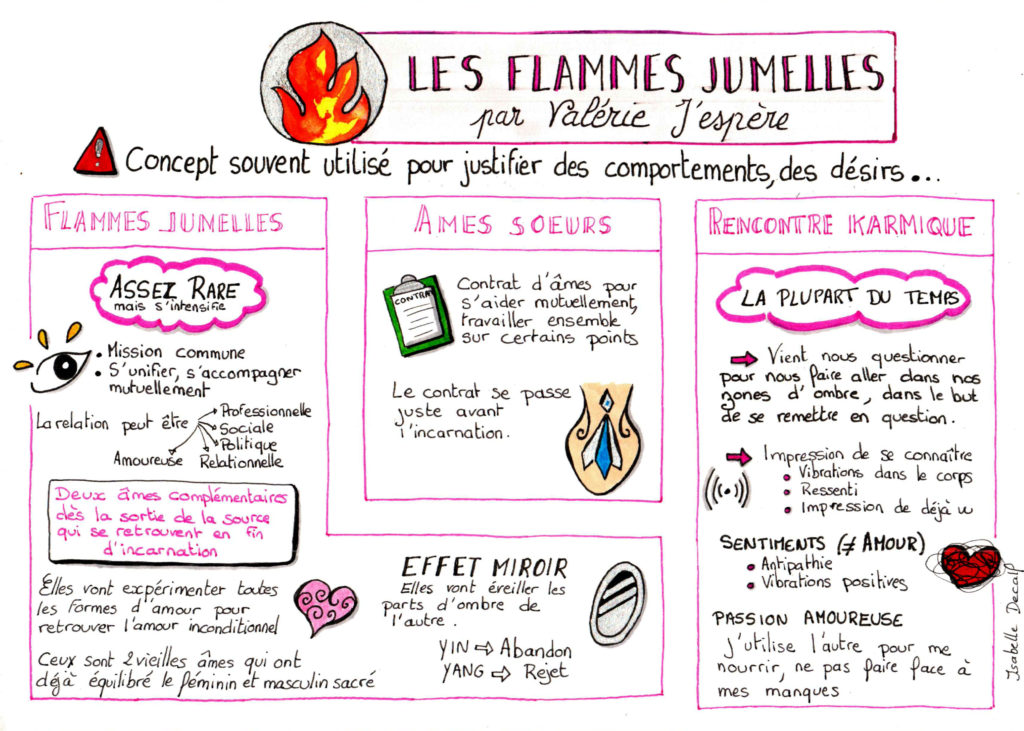 LES FLAMMES JUMELLES
par Valérie J'espère
! Concept souvent utilisé pour justifier des comportements, des désirs...
FLAMMES JUMELLES
ASSEZ RARE
mais s'intensifie
• Mission commune
• S'unifier, s'accompagner
mutuellement
La relation peut être
Professionnelle
Sociale
Politique
Amoureuse
Relationnelle
Deux âmes complémentaires
dès la sortie de la source
qui se retrouvent en fin
d'incarnation
Elles vont expérimenter toutes
les formes d'amour pour
retrouver l'amour inconditionnel
Ceux sont 2 vieilles âmes qui ont
déjà équilibré le féminin et masculin sacré
EFFET MIROIR
Elles vont éveiller les
parts d'ombre de
l'autre.
YIN ⇨ Abandon
YANG ⇨ Rejet
AMES SOEURS
CONTRAT
Contrat d'âmes pour
s'aider mutuellement,
travailler ensemble
sur certains points
Le contrat se passe
juste avant
l'incarnation.
RENCONTRE KARMIQUE
LA PLUPART DU TEMPS
Vient nous questionner
pour nous faire aller dans nos
zones d'ombre, dans le but
de se remettre en question.
Impression de se connaître
• Vibrations dans le corps
• Ressenti
• Impression de déjà vu
SENTIMENTS (≠ AMOUR)
• Antipathie
• Vibrations positives
PASSION AMOUREUSE
J'utilise l'autre pour me
nourrir, ne pas faire face à
mes manques
Isabelle Decalp